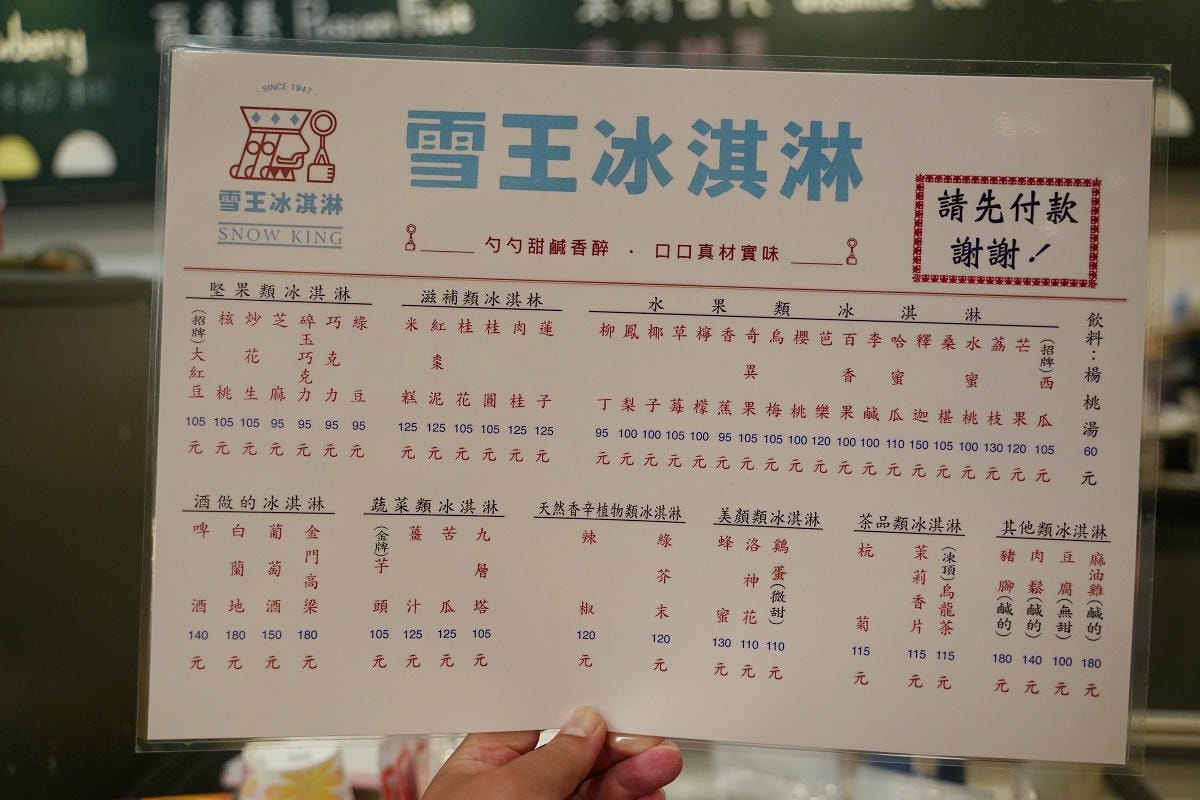 wberry
百香果 Passion Fruit
SINCE 1947
雪王冰淇淋
SNOW KING
雪王冰淇淋
勺勺甜鹹香醉 · 口口真材實味
請先付款
謝謝!
堅果類冰淇淋
(招牌)大紅豆 105元
核桃 105元
炒花生 105元
芝麻 95元
碎玉巧克力 95元
巧克力 95元
綠豆 95元
滋補類冰淇淋
米糕 125元
紅棗泥 125元
桂花 105元
桂圓 105元
肉桂 125元
蓮子 125元
水果類冰淇淋
柳丁 95元
鳳梨 100元
椰子 100元
草莓 105元
檸檬 100元
香蕉 95元
奇異果 105元
烏梅 105元
櫻桃 100元
芭樂 120元
百香果 100元
李鹹 100元
哈蜜瓜 110元
釋迦 150元
桑椹 105元
水蜜桃 100元
荔枝 130元
芒果 120元
(招牌)西瓜 105元
飲料：楊桃湯 60元
酒做的冰淇淋
啤酒 140元
白蘭地 180元
葡萄酒 150元
金門高梁 180元
蔬菜類冰淇淋
(金牌)芋頭 105元
薑汁 125元
苦瓜 125元
九層塔 105元
天然香辛植物類冰淇淋
辣椒 120元
綠芥末 120元
美顏類冰淇淋
蜂蜜 130元
洛神花 110元
鷄蛋(微甜) 110元
茶品類冰淇淋
杭菊 115元
茉莉香片 115元
(凍頂)烏龍茶 115元
其他類冰淇淋
豬腳(鹹的) 180元
肉鬆(鹹的) 140元
豆腐(無甜) 100元
麻油雞(鹹的) 180元